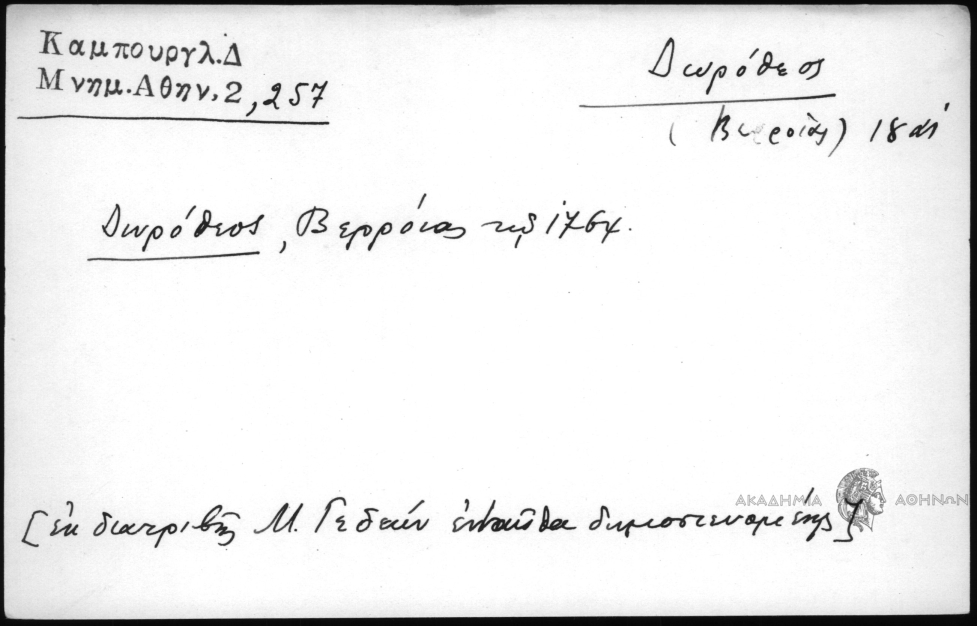 Καμπουργλ.Δ
Μνημ.Αθην.2,257
Δωρόθεος
(Βερροίας) 18 αἰ
Δωρόθεος, Βερροίας τῷ 1764.
[ἐκ διατριβῆς Μ. Γεδεών ἐνταῦθα δημοσιευομένης]
ΑΚΑΔΗΜΙΑ ΑΘΗΝΩΝ